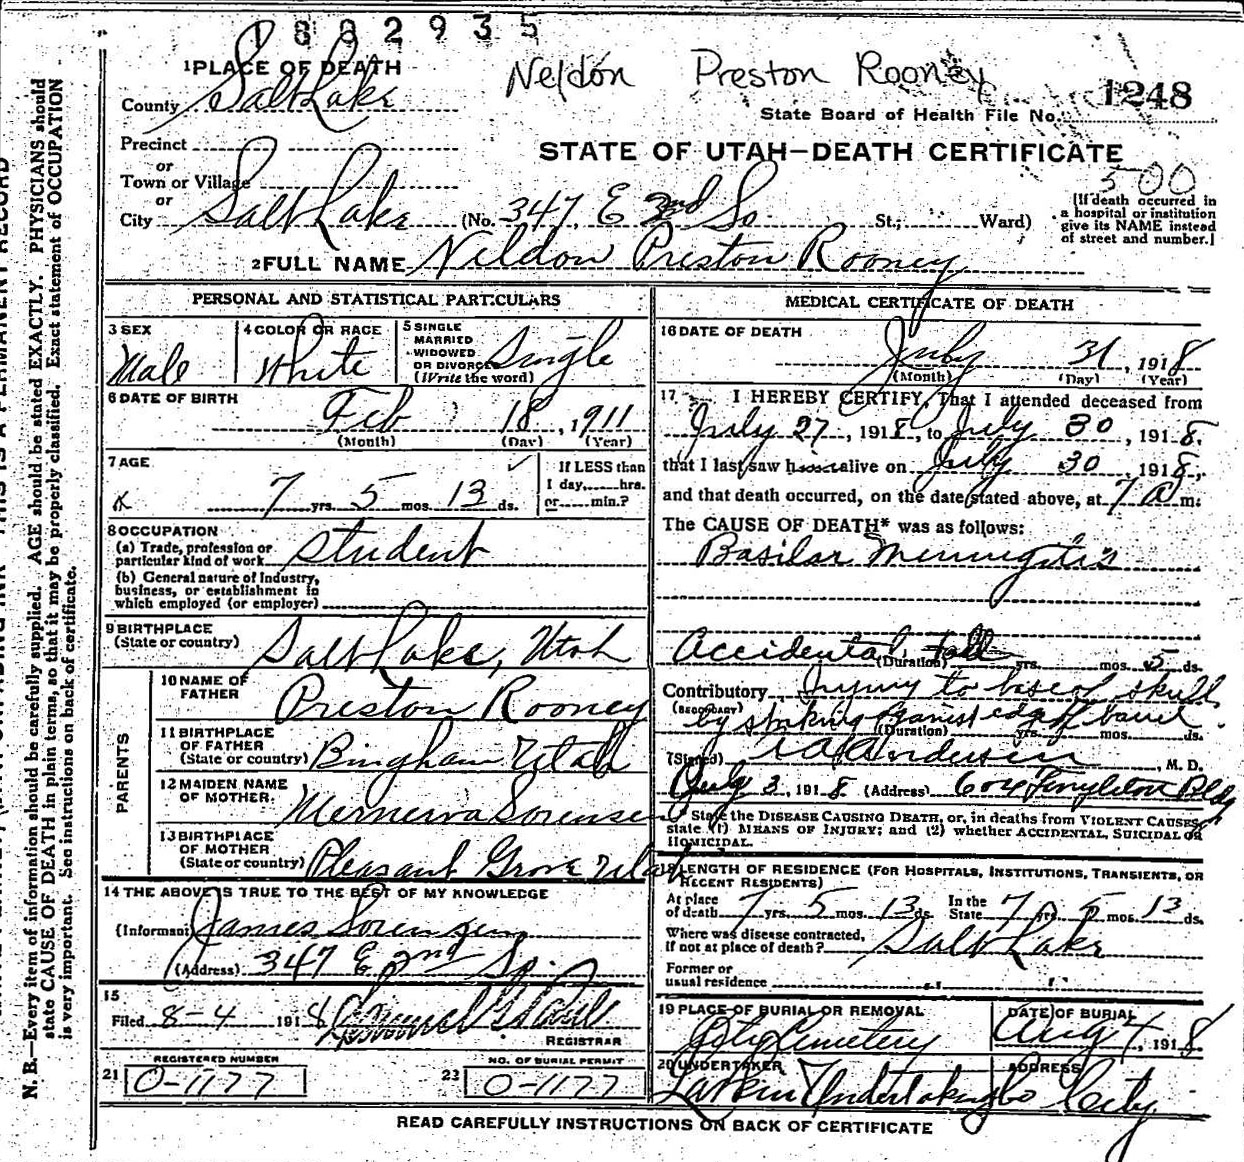 1882935
Neldon Preston Rooney
1 PLACE OF DEATH
County Salt Lake
1248
State Board of Health File No.
Precinct
or
Town or Village
or
City Salt Lake (No. 347 E 2nd So. St.; Ward)
STATE OF UTAH—DEATH CERTIFICATE
500
(If death occurred in
a hospital or institution
give its NAME instead
of street and number.)
2 FULL NAME Neldon Preston Rooney
PERSONAL AND STATISTICAL PARTICULARS
3 SEX
Male
4 COLOR OR RACE
White
5 SINGLE
MARRIED
WIDOWED
OR DIVORCED
(Write the word)
Single
6 DATE OF BIRTH
Feb 18, 1911
(Month) (Day) (Year)
7 AGE
7 yrs. 5 mos. 13 ds.
If LESS than
1 day, hrs.
or min.?
8 OCCUPATION
(a) Trade, profession or
particular kind of work student
(b) General nature of industry,
business, or establishment in
which employed (or employer)
9 BIRTHPLACE
(State or country)
Salt Lake, Utah
PARENTS
10 NAME OF
FATHER
Preston Rooney
11 BIRTHPLACE
OF FATHER
(State or country) Bingham Utah
12 MAIDEN NAME
OF MOTHER
Mernerva Sorensen
13 BIRTHPLACE
OF MOTHER
(State or country) Pleasant Grove Utah
14 THE ABOVE IS TRUE TO THE BEST OF MY KNOWLEDGE
(Informant) James Sorensen
(Address) 347 E 2nd So.
15
Filed 8-4 1918
REGISTRAR
REGISTERED NUMBER
21 0-1177
NO. OF BURIAL PERMIT
23 0-1177
MEDICAL CERTIFICATE OF DEATH
16 DATE OF DEATH
July 31, 1918
(Month) (Day) (Year)
17 I HEREBY CERTIFY, That I attended deceased from
July 27, 1918, to July 30, 1918.
that I last saw him alive on July 30, 1918,
and that death occurred, on the date stated above, at 7 a m.
The CAUSE OF DEATH* was as follows:
Basilar Meningitis
Accidental fall
(Duration) yrs. mos. 5 ds.
Contributory Injury to base of skull
(SECONDARY) by striking against edge of barrel
(Duration) yrs. mos. ds.
(Signed) Anderson, M. D.
1918 (Address) 604 Bldg
* State the DISEASE CAUSING DEATH, or, in deaths from VIOLENT CAUSES,
state (1) MEANS OF INJURY; and (2) whether ACCIDENTAL, SUICIDAL OR
HOMICIDAL.
18 LENGTH OF RESIDENCE (FOR HOSPITALS, INSTITUTIONS, TRANSIENTS, OR
RECENT RESIDENTS)
At place
of death 7 yrs. 5 mos. 13 ds.
In the
State 7 yrs. 5 mos. 13 ds.
Where was disease contracted,
if not at place of death? Salt Lake
Former or
usual residence
19 PLACE OF BURIAL OR REMOVAL
City Cemetery
DATE OF BURIAL
Aug 4, 1918
20 UNDERTAKER
Larkin Undertaking Co
ADDRESS
City.
READ CAREFULLY INSTRUCTIONS ON BACK OF CERTIFICATE
N. B.—Every item of information should be carefully supplied. AGE should be stated EXACTLY. PHYSICIANS should
state CAUSE OF DEATH in plain terms, so that it may be properly classified. Exact statement of OCCUPATION
is very important. See instructions on back of certificate.